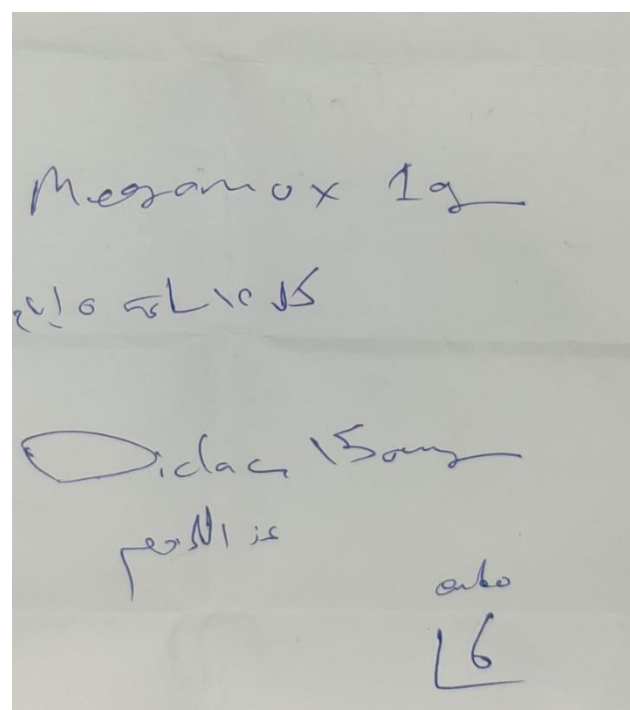 Megamox 1g
كل ١٢ ساعة ٥ أيام
Diclac 150mg
عند الألم
حشو
6